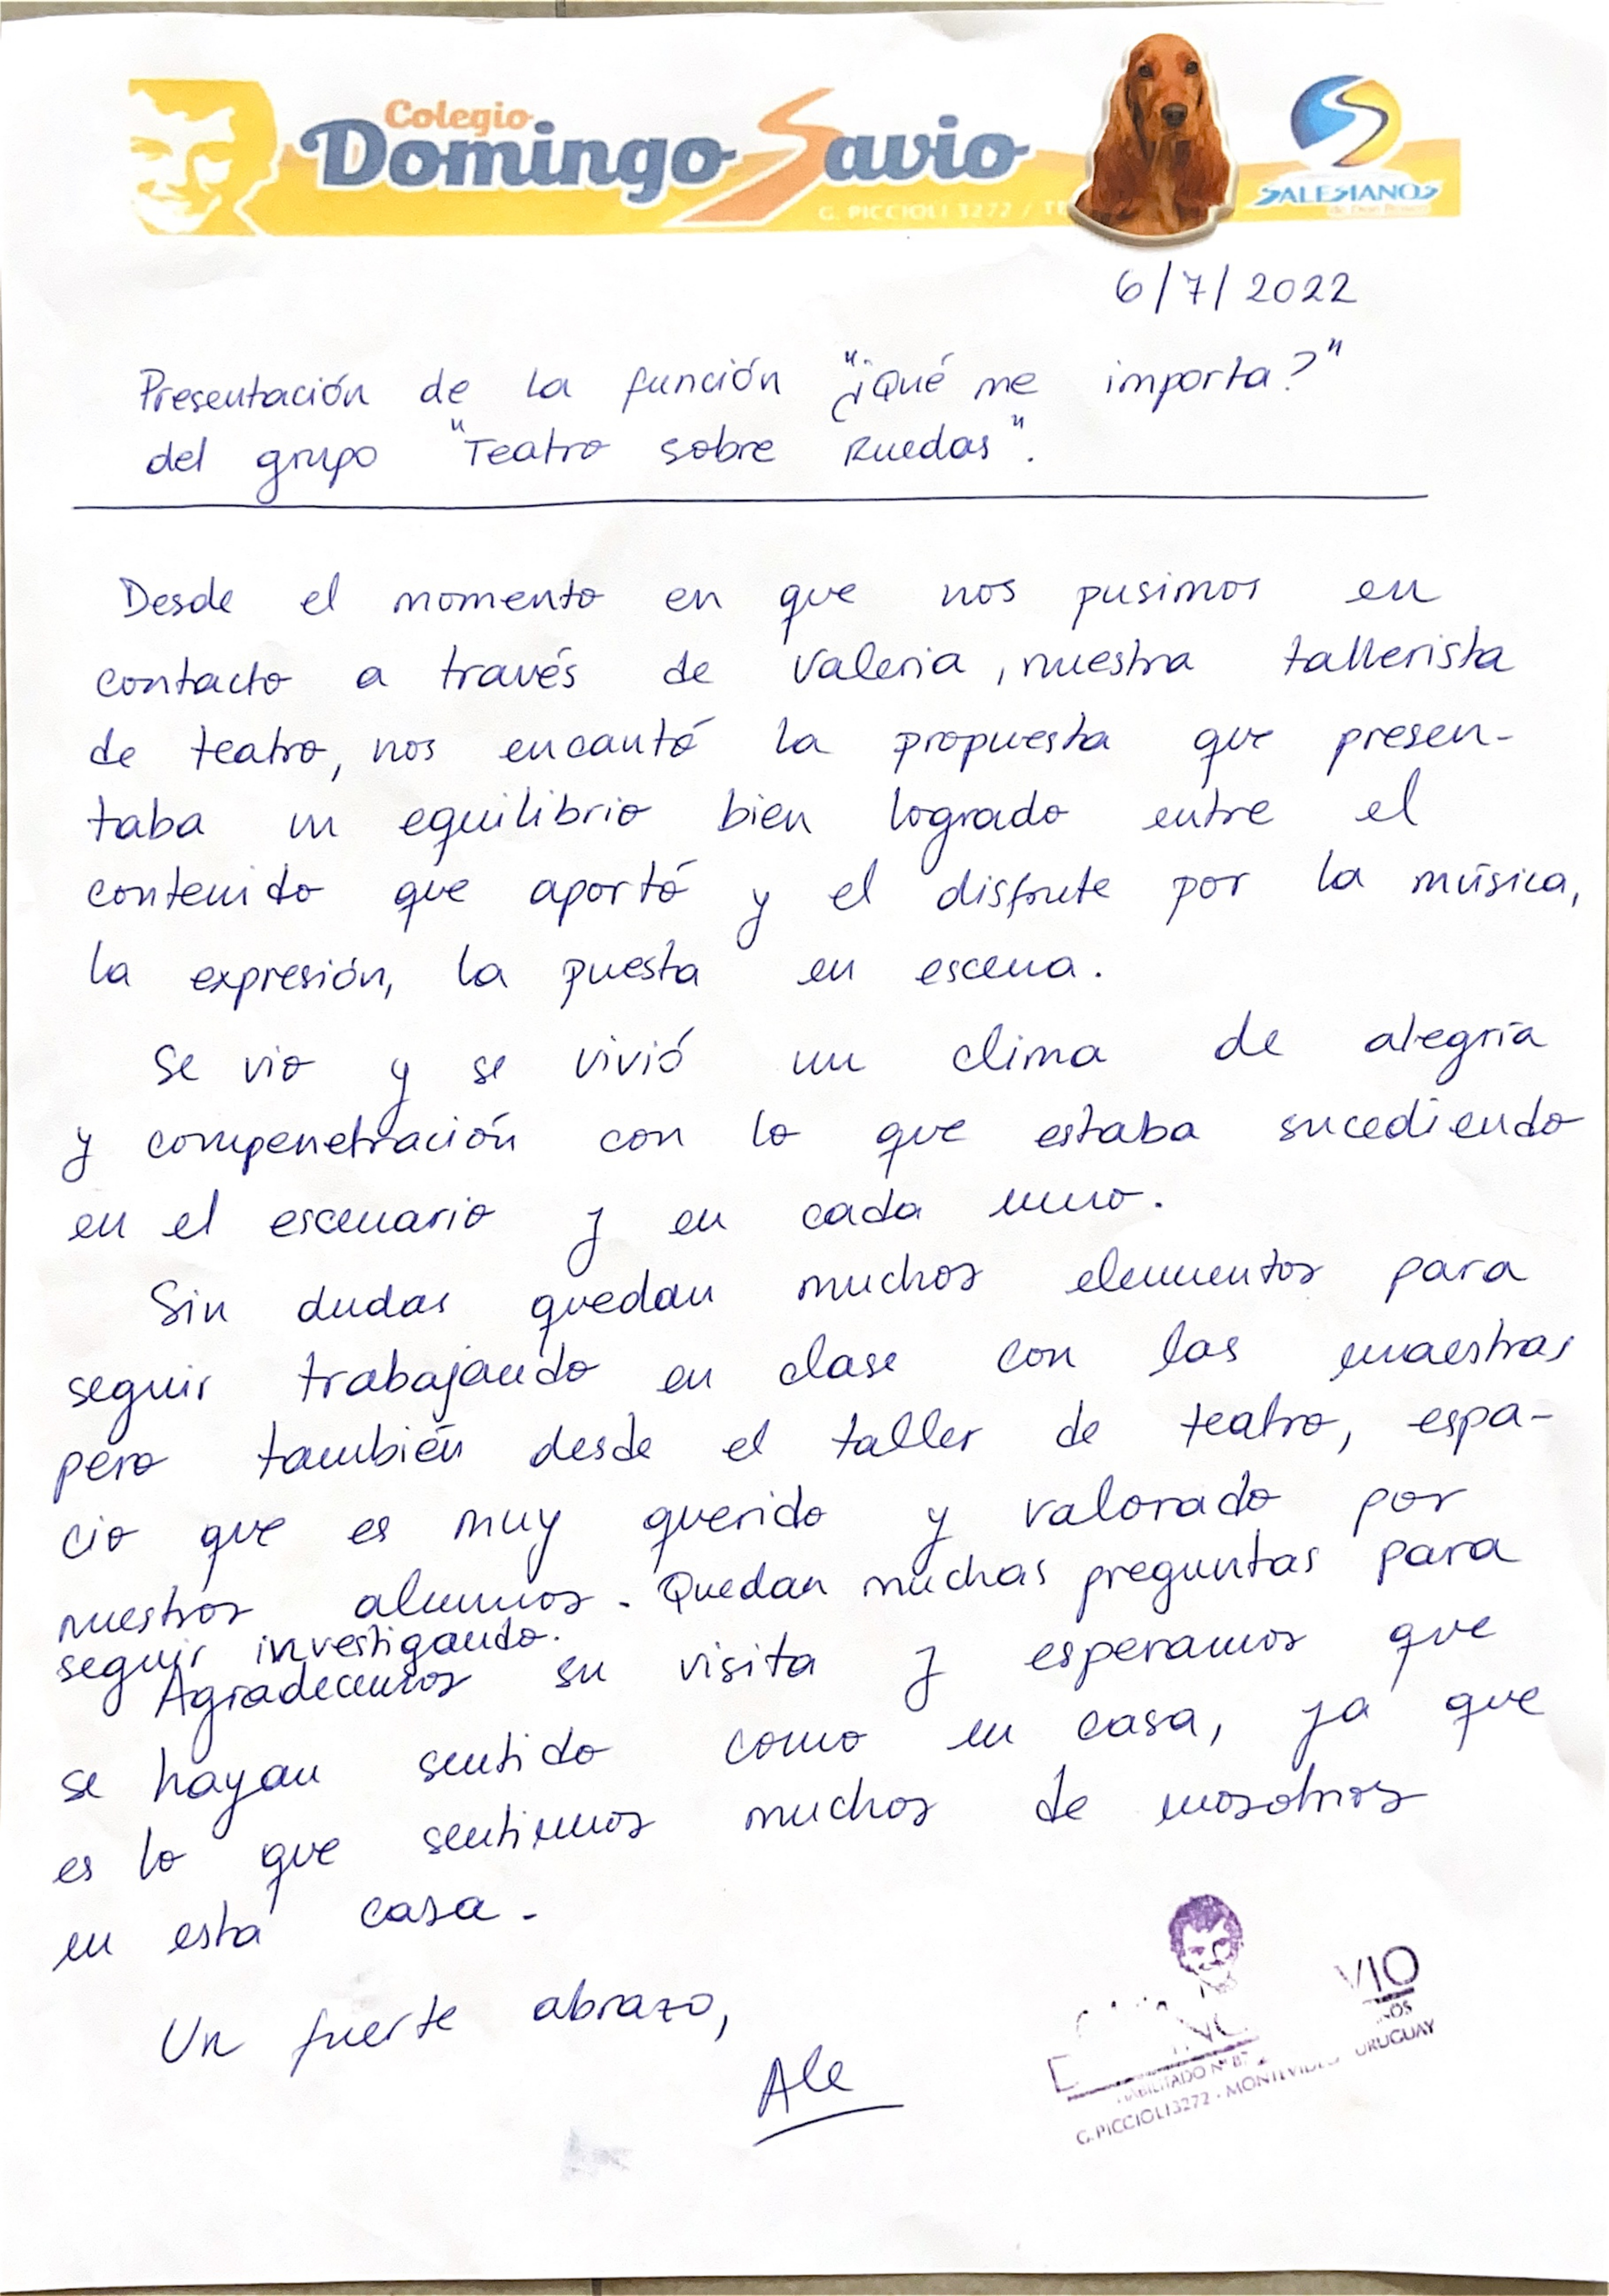 Colegio
Domingo Savio
G. PICCIOLI 3272 / TE
SALESIANOS
de Don Bosco
6/7/2022
Presentación de la función "¿¡Qué me importa?"
del grupo "Teatro sobre Ruedas".
Desde el momento en que nos pusimos en
contacto a través de Valeria, nuestra tallerista
de teatro, nos encantó la propuesta que presen-
taba un equilibrio bien logrado entre el
contenido que aportó y el disfrute por la música,
la expresión, la puesta en escena.
Se vio y se vivió un clima de alegría
y compenetración con lo que estaba sucediendo
en el escenario y en cada uno.
Sin dudas quedan muchos elementos para
seguir trabajando en clase con las maestras
pero también desde el taller de teatro, espa-
cio que es muy querido y valorado por
nuestros alumnos. Quedan muchas preguntas para
seguir investigando.
Agradecemos su visita y esperamos que
se hayan sentido como en casa, ya que
es lo que sentimos muchos de nosotros
en esta casa.
Un fuerte abrazo,
Ale
VIO
HABILITADO Nº
G. PICCIOLI 3272 - MONTEVIDEO - URUGUAY